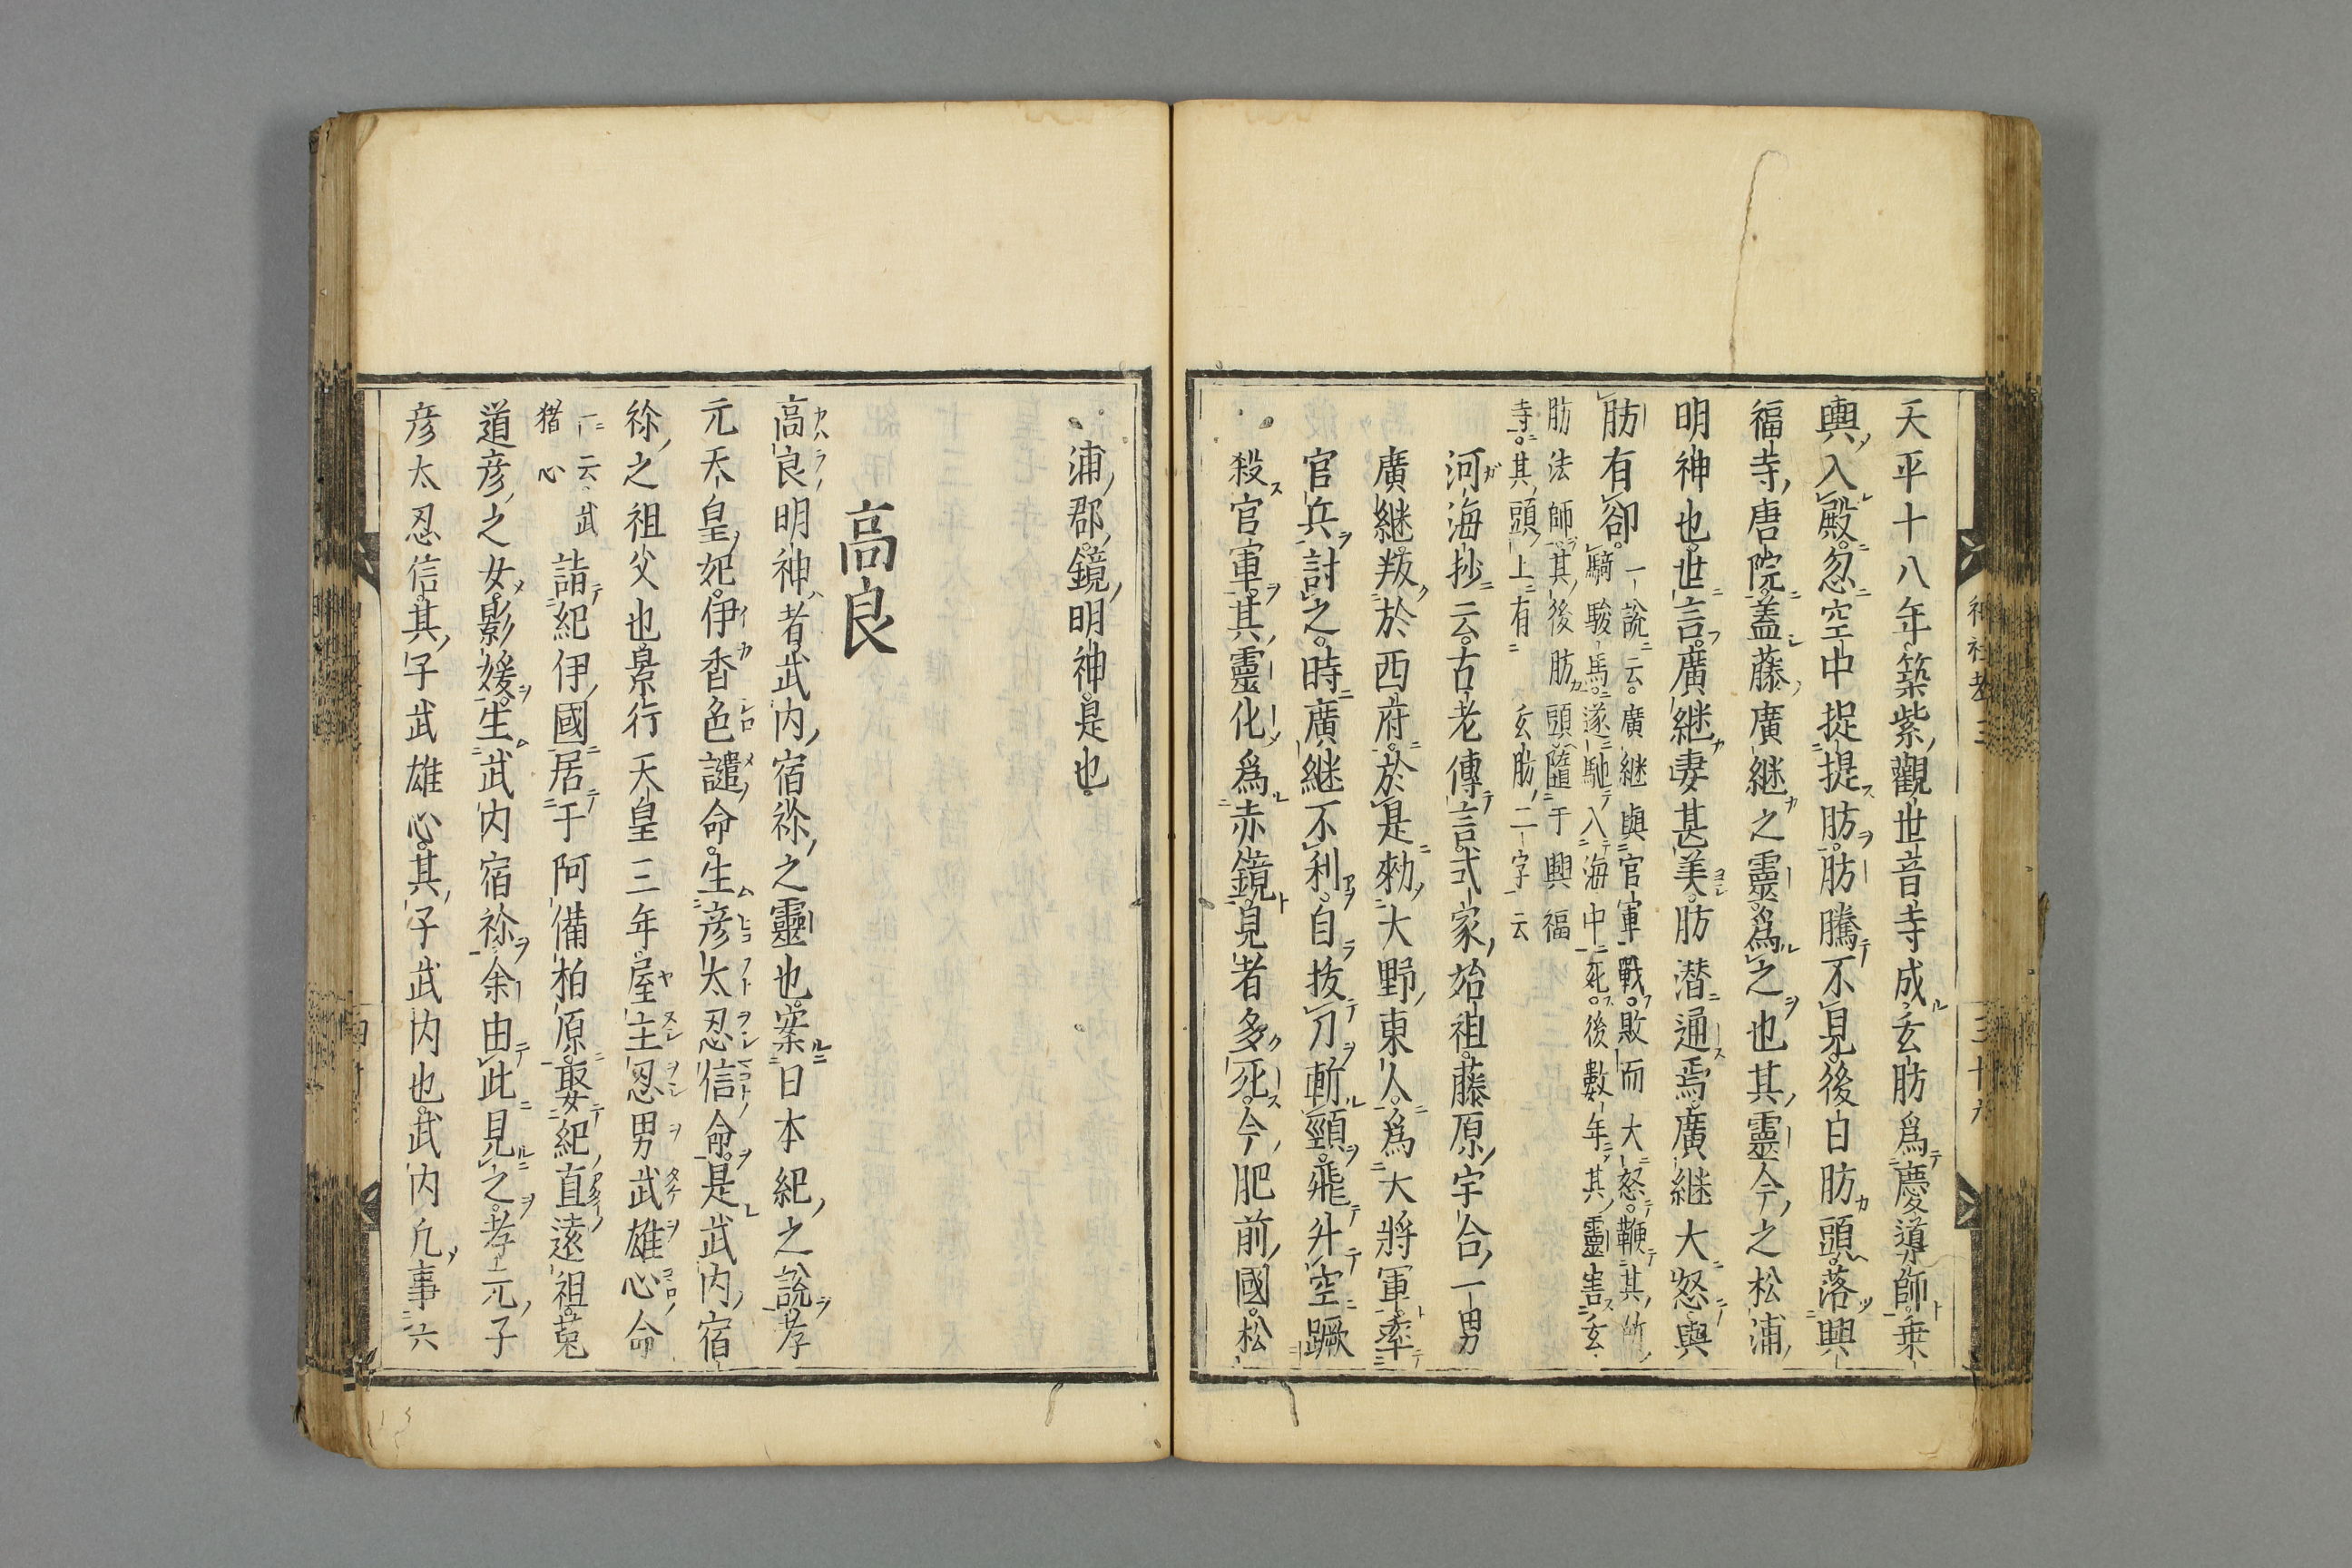 天平十八年築紫觀世音寺成玄肪爲慶導師乗
輿入殿忽空中捉提肪肪騰不見後日肪頭落興
福寺唐院蓋藤廣継之靈爲之也其靈今之松浦
明神也世言廣継妻甚美肪潜通焉廣継大怒與
肪有郤
一説云廣継與官軍戰敗而大怒鞭其所
騎駿馬遂馳入海中死後數年其靈害玄
肪法師其後肪頭隨于興福
寺其頭上有玄肪二字云
河海抄云古老傳言式家始祖藤原宇合一男
廣継叛於西府於是勅大野東人爲大將軍率
官兵討之時廣継不利自抜刀斬頸飛升空蹶
殺官軍其靈化爲赤鏡見者多死今肥前國松
浦郡鏡明神是也
高良
高良明神者武内宿祢之靈也案日本紀之說孝
元天皇妃伊香色謎命生彦太忍信命是武内宿
祢之祖父也景行天皇三年屋主忍男武雄心命
一云武
猪心
詣紀伊國居于阿備柏原娶紀直遠祖菟
道彦之女影媛生武内宿祢余由此見之孝元子
彦太忍信其子武雄心其子武内也武内凢事六
神社考三
三十九